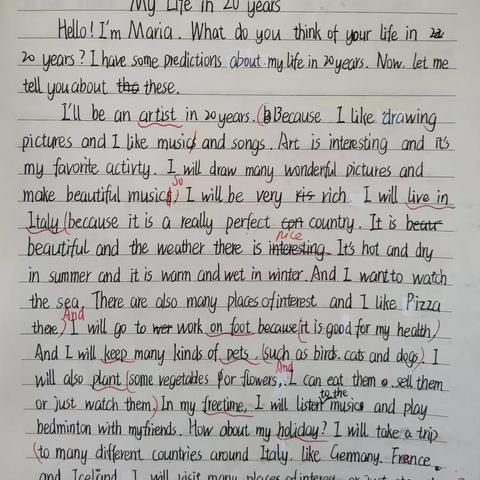 My Life in 20 years
Hello! I'm Maria. What do you think of your life in
20 years? I have some predictions about my life in 20 years. Now let me
tell you about these.
I'll be an artist in 20 years. (Because I like drawing
pictures and I like music and songs. Art is interesting and it's
my favorite activty. I will draw many wonderful pictures and
So
make beautiful music) I will be very rich I will live in
Italy (because it is a really perfect country. It is
nice
beautiful and the weather there is interesting. It's hot and dry
in summer and it is warm and wet in winter. And I want to watch
the sea. There are also many places of interest and I like Pizza
And
there) I will go to work on foot because (it is good for my health)
And I will keep many kinds of pets. (such as birds. cats and dogs). I
And
will also plant (some vegetables or flowers, I can eat them. sell them
to the
or just watch them) In my freetime, I will listen music and play
bedminton with my friends. How about my holiday? I will take a trip
(to many different countries around Italy. like Germany. Frence
and Iceland. I will visit many places of interest or just